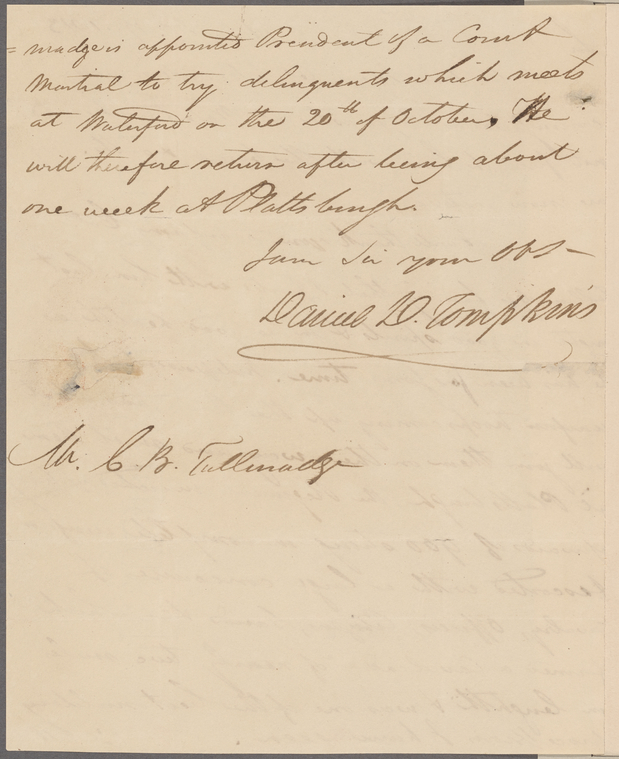 = madge is appointed President of a Court
Martial to try delinquents which meets
at Waterford on the 20th of October. He
will therefore return after being about
one week at Plattsburgh.
I am Sir your Obt
Daniel D. Tompkins
Mr. C. B. Tallmadge
time.